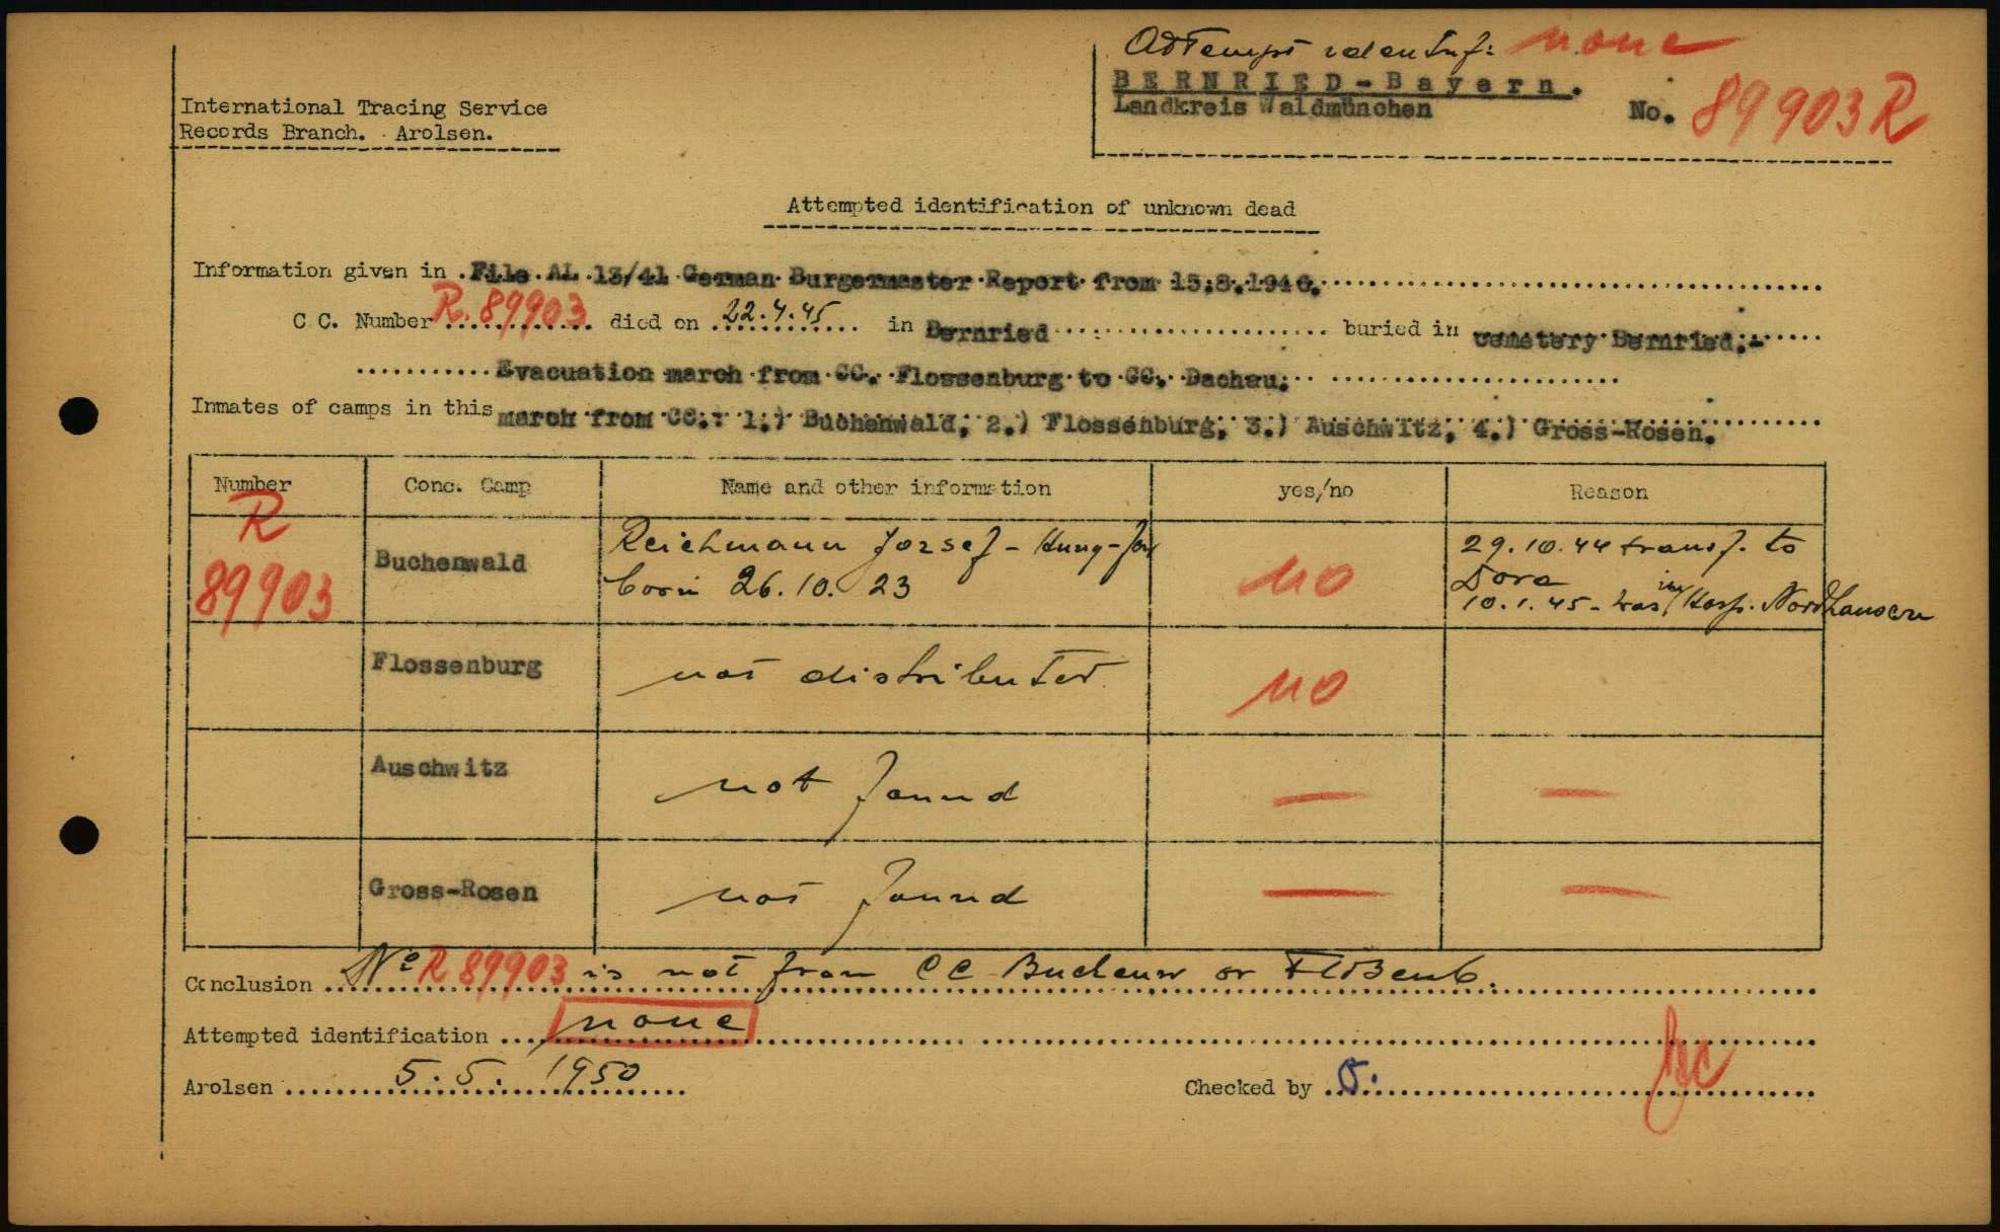 Attempt identif: none
BERNRIED-Bayern.
Landkreis Waldmünchen No. 89903 R
International Tracing Service
Records Branch. Arolsen.
Attempted identification of unknown dead
Information given in File AL 13/41 German Burgermaster Report from 15.8.1946.
C C. Number R. 89903 died on 22.4.45 in Bernried buried in cemetery Bernried.-
Evacuation march from CC. Flossenburg to CC. Dachau.
Inmates of camps in this march from CC.: 1.) Buchenwald, 2.) Flossenburg, 3.) Auschwitz, 4.) Gross-Rosen.
Number Conc. Camp Name and other information yes/no Reason
R
89903
Buchenwald
Reichmann Jozsef - Hung-Jew
born 26.10.23
no
29.10.44 transf. to
Dora
10.1.45 - was in Hosp. Nordhausen
Flossenburg not distributed no
Auschwitz not found — —
Gross-Rosen not found — —
Conclusion No R 89903 is not from CC Buchenw or Floßenb.
Attempted identification none
Arolsen 5.5.1950 Checked by